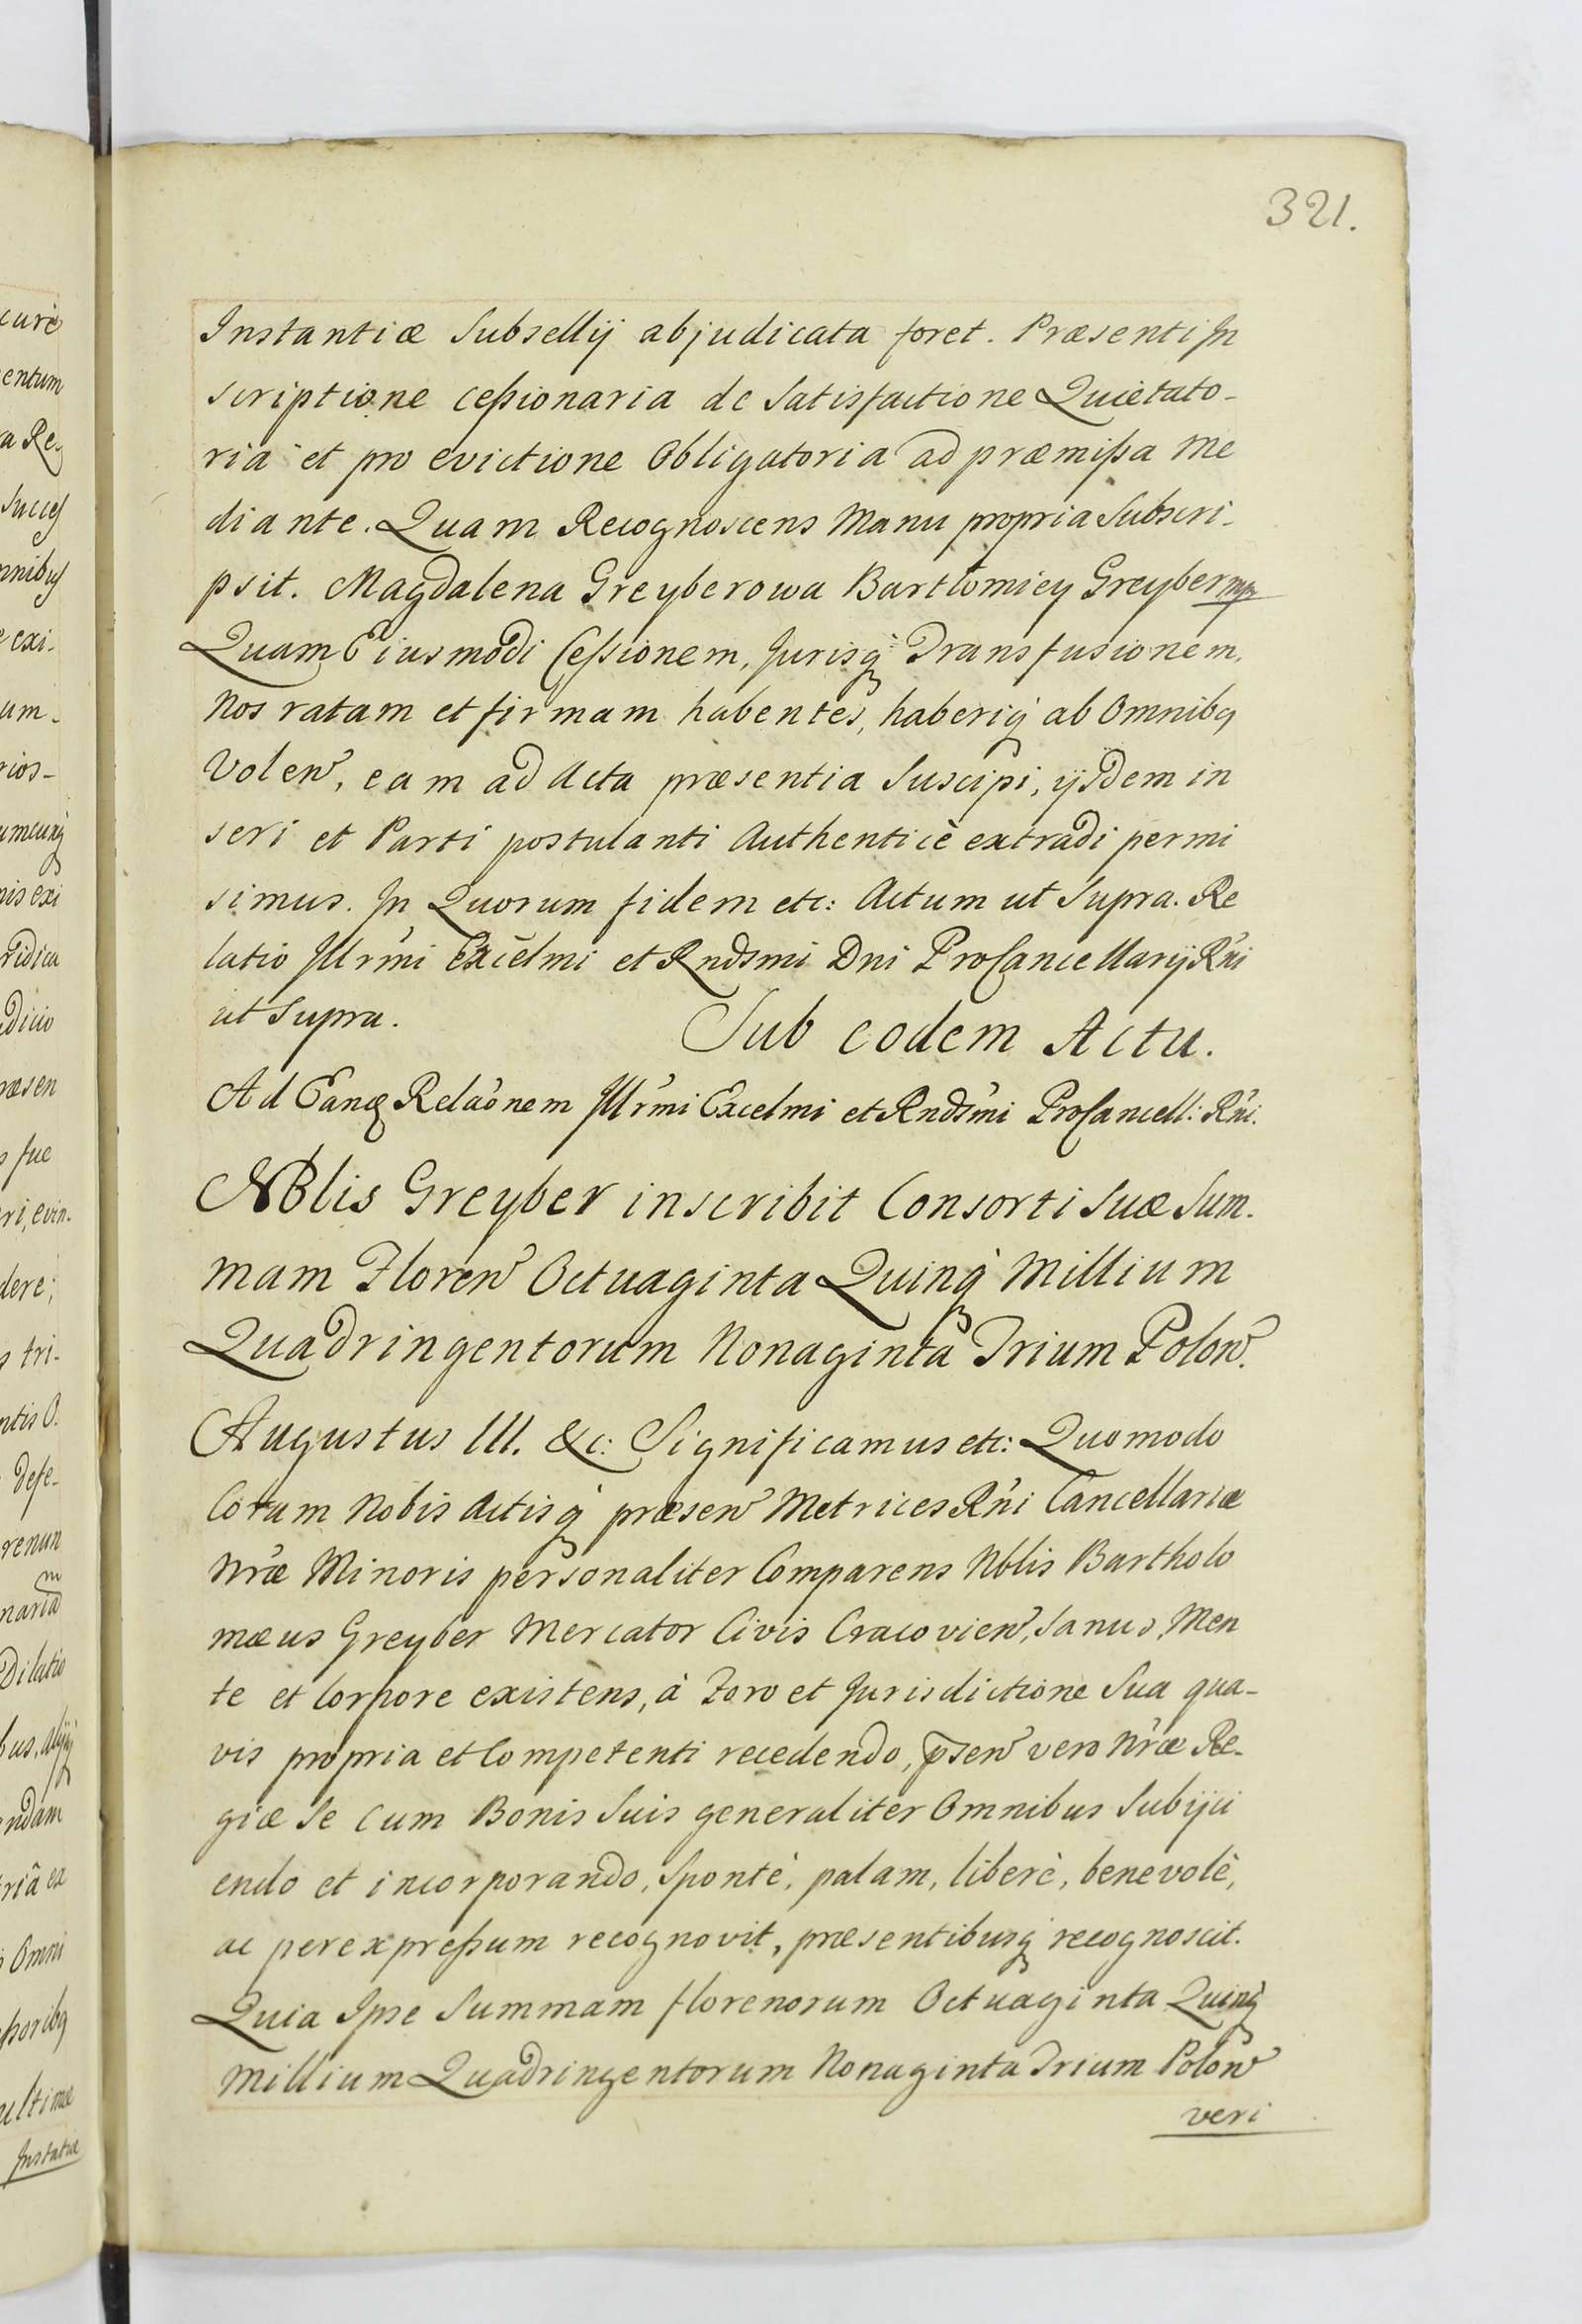 321.
Instantiæ Subsellij abjudicata foret. Præsenti In
scriptione cessionaria de Satisfactione Quietato-
ria et pro evictione Obligatoria ad præmissa Me
diante. Quam Recognoscens Manu propria Subscri-
psit. Magdalena Greyberowa Bartłomiey Greyber mp
Quam Eiusmodi Cessionem, Jurisq̀ Transfusionem,
Nos ratam et firmam habentes, haberiq̀ ab Omnibq
Volen̄, eam ad Acta præsentia Suscipi, ijsdem in
seri et Parti postulanti Authenticè extradi permi
simus. In Quorum fidem etc: Actum ut Supra. Re
latio Illr̄mi Excēlmi et Rndsmi Dni ProCancellarij Rn̄i
ut Supra. Sub eodem Actu.
Ad Eanq Relaōnem Illr̄mi Excelmi et Rnds̄mi ProCancell: Rn̄i.
Nblis Greyber inscribit Consorti Suæ Sum-
mam Floren̄ Octuaginta Quinq̀ Millium
Quadringentorum Nonaginta Trium Polon̄.
Augustus III. &c: Significamus etc: Quomodo
Coram Nobis Actisq̀ præsen̄ Metrices Rn̄i Cancellariæ
Nr̄æ Minoris personaliter Comparens Nblis Bartholo
mæus Greyber Mercator Civis Cracovien̄, Sanus Men
te et Corpore existens, à Foro et Jurisdictione Sua qua-
vis propria et Competenti recedendo, p̄sen̄ vero Nr̄æ Re-
giæ Se Cum Bonis Suis generaliter Omnibus Subijci
endo et incorporando, Spontè, palam, liberè, benevolè,
ac per expressum recognovit, præsentibusq̀ recognoscit.
Quia Ipse Summam florenorum Octuaginta Quinq̀
Millium Quadringentorum Nonaginta Trium Polon̄
veri